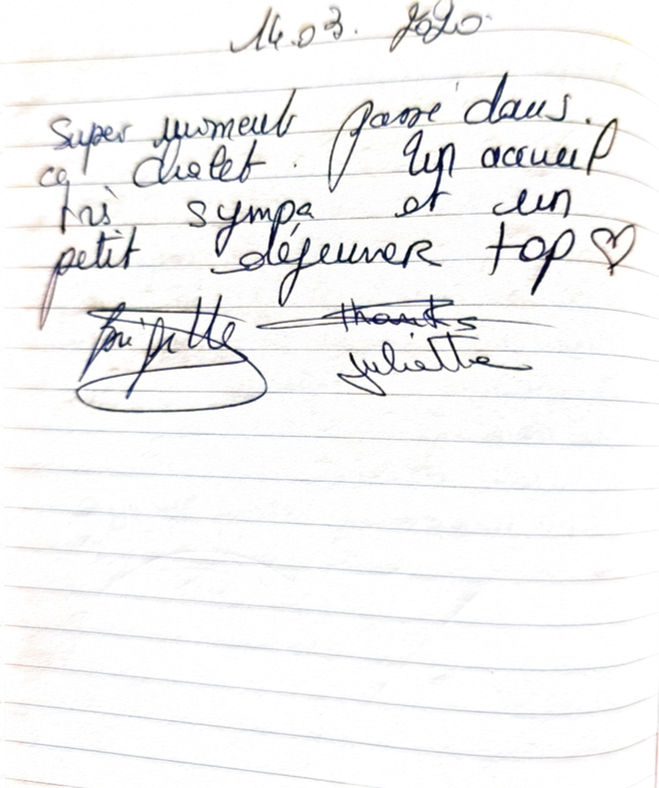 14.03.2020
Super moment passé dans
ce chalet. Un accueil
très sympa et un
petit déjeuner top ♡
thanks
Juliette